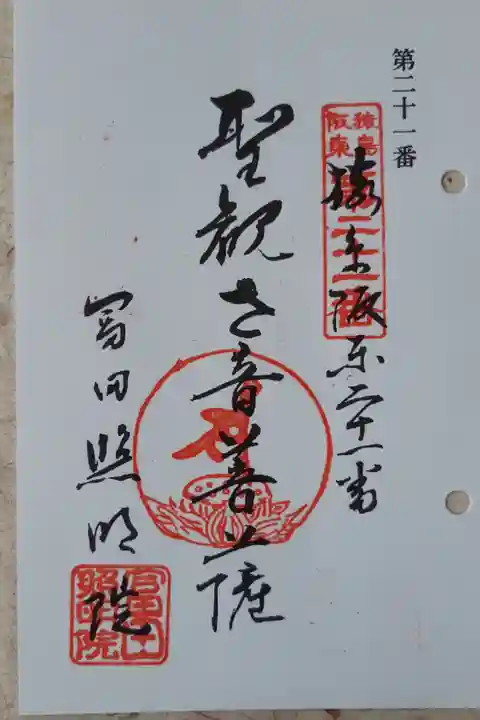 第二十一番
猿島阪東第二十一番
猿島阪东二十一番
聖観世音菩薩
冨田照明院
照明院